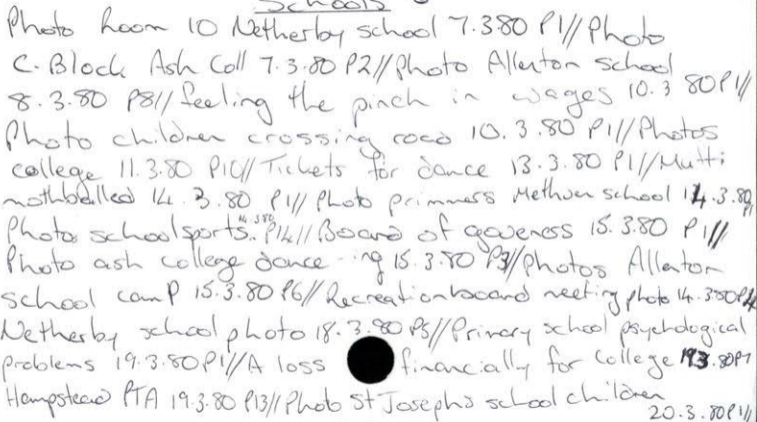 Schools
Photo Room 10 Netherby school 7.3.80 P1//Photo
C. Block Ash Coll 7.3.80 P2//Photo Allenton school
8.3.80 P8//feeling the pinch in wages 10.3 80P1//
Photo children crossing road 10.3.80 P1//Photos
college 11.3.80 P10//Tickets for dance 13.3.80 P1//Mutti
mothballed 14.3.80 P1//Photo primmers Methven school 14.3.80
Photos school sports. 14.3.80 P14//Board of goveness 15.3.80 P1//
Photo ash college dance - ing 15.3.80 P3//photos Allenton
school camp 15.3.80 P6//Recreation board meeting photo 14.3.80P4
Netherby school photo 18.3.80 P5//Primary school psychological
problems 19.3.80P1//A loss financially for college 19.3.80P1
Hampstead PTA 19.3.80 P13//Photo St Josephs school children
20.3.80P1//